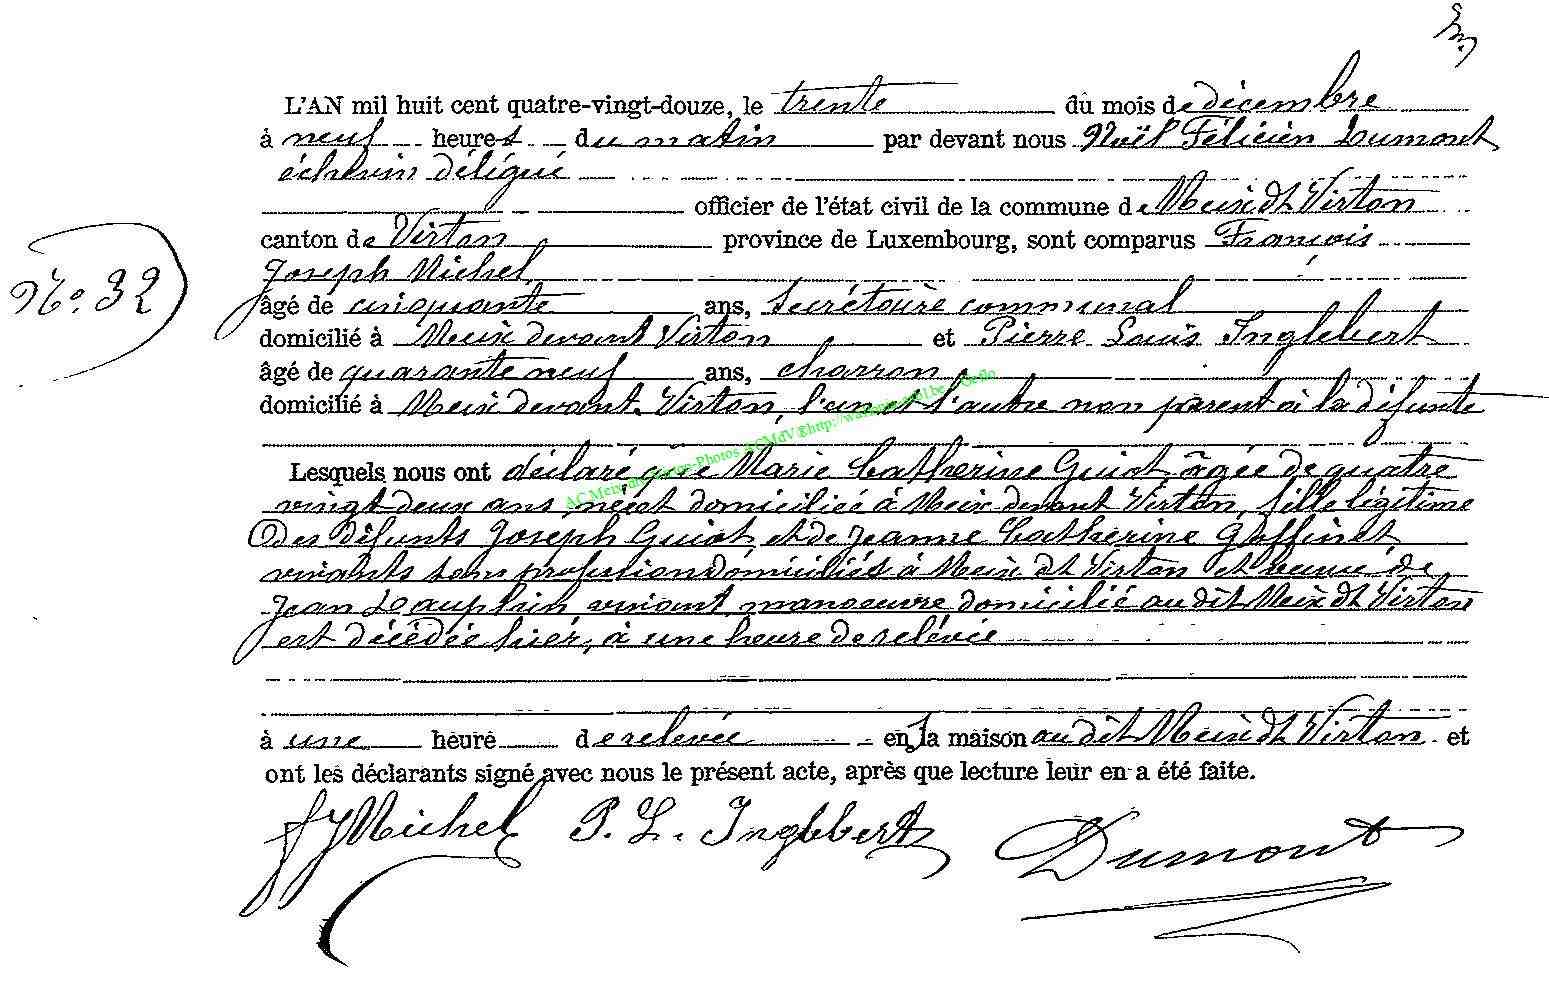 L'AN mil huit cent quatre-vingt-douze, le trente du mois de décembre
à neuf heures du matin par devant nous Noël Félicien Dumont
échevin délégué
officier de l'état civil de la commune de Meix dt Virton
canton de Virton province de Luxembourg, sont comparus François
Joseph Michel
No. 32
âgé de cinquante ans, Secrétaire communal
domicilié à Meix devant Virton et Pierre Louis Inglebert
âgé de quarante neuf ans, charron
domicilié à Meix devant Virton, l'un et l'autre non parent à la défunte
Lesquels nous ont déclaré que Marie Catherine Guiot âgée de quatre
vingt deux ans, née et domiciliée à Meix devant Virton, fille légitime
des défunts Joseph Guiot et de Jeanne Catherine Goffinet
vivants sans profession domiciliés à Meix dt Virton et veuve de
Jean Dauphin vivant manoeuvre domicilié au dit Meix dt Virton
est décédée hier, à une heure de relevée
à une heure de relevée en la maison au dit Meix dt Virton et
ont les déclarants signé avec nous le présent acte, après que lecture leur en a été faite.
FJ Michel P. L. Inglebert Dumont